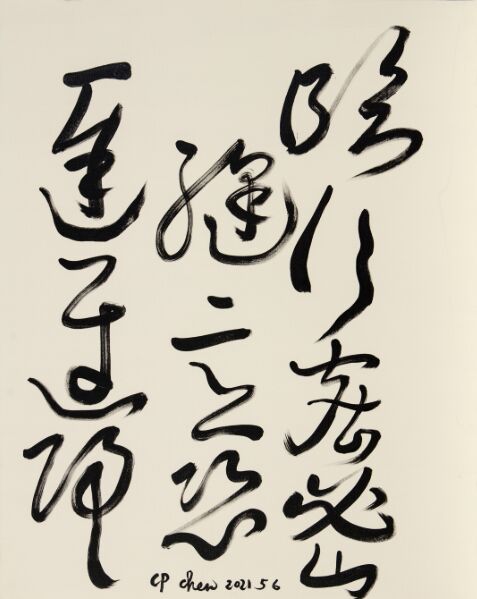 臨行密密
縫意恐
遲遲歸
CP Chen 2021.5.6